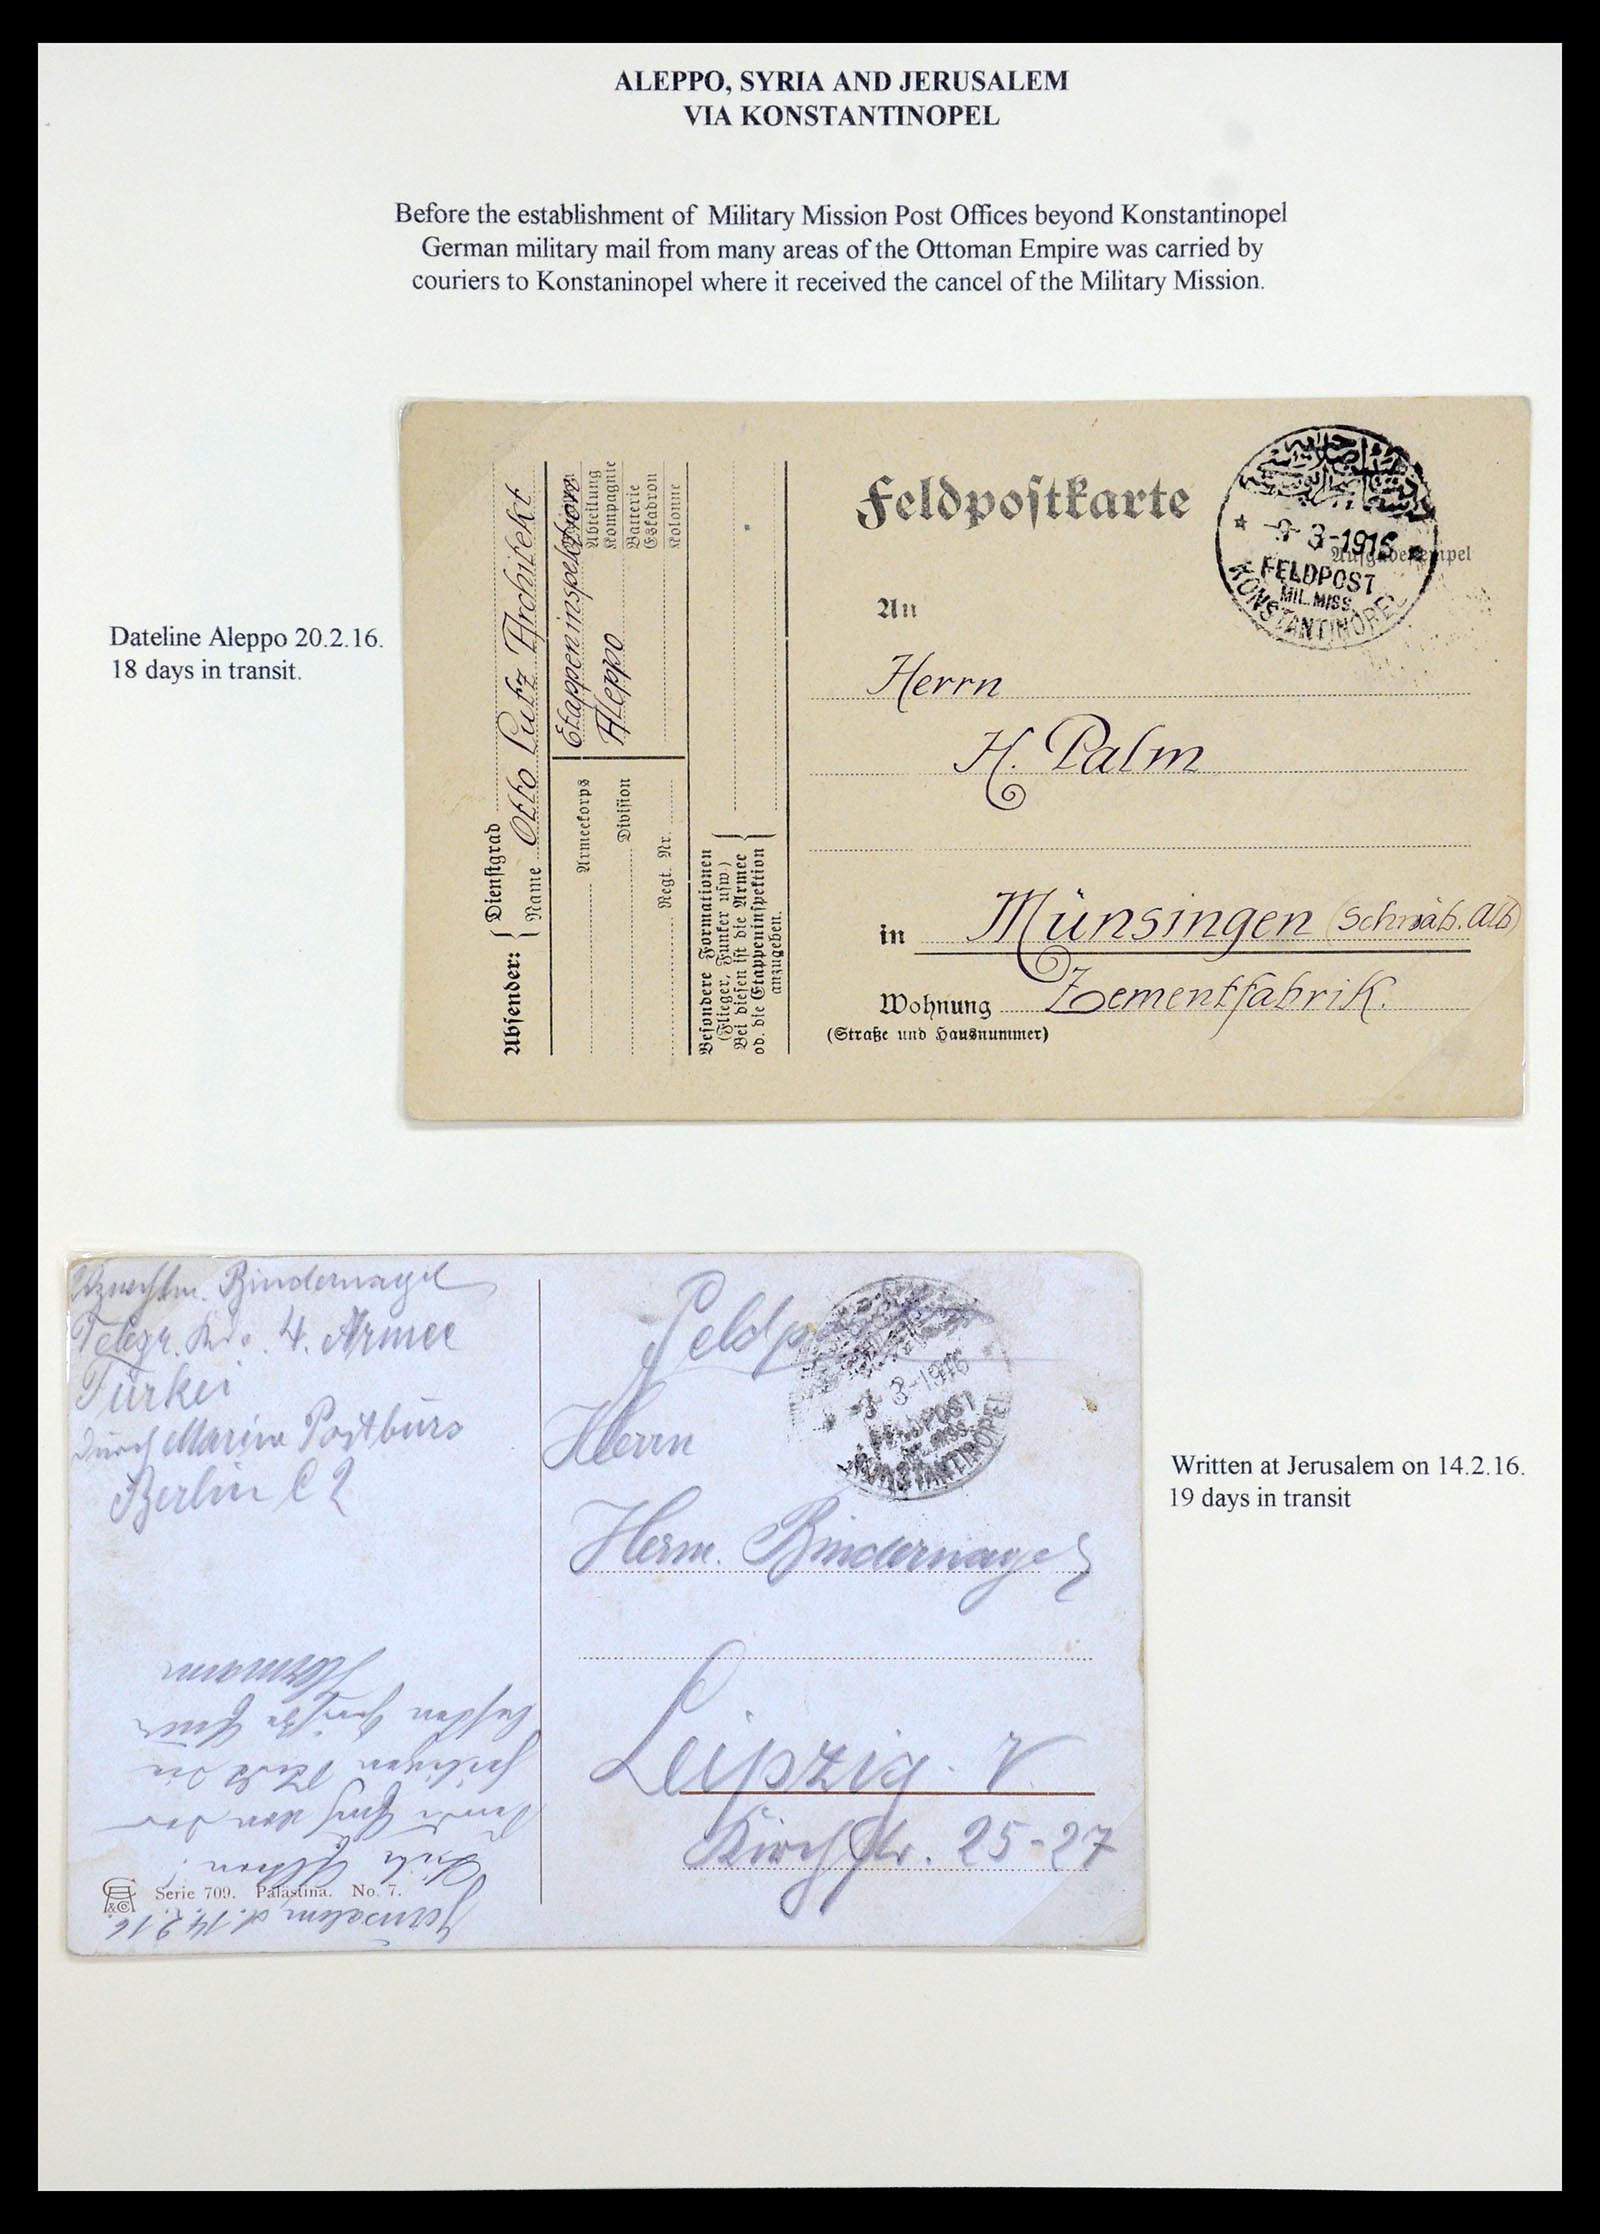 ALEPPO, SYRIA AND JERUSALEM
VIA KONSTANTINOPEL
Before the establishment of Military Mission Post Offices beyond Konstantinopel
German military mail from many areas of the Ottoman Empire was carried by
couriers to Konstaninopel where it received the cancel of the Military Mission.
Dateline Aleppo 20.2.16.
18 days in transit.
Absender:
Dienstgrad
Name Otto Lutz Architekt
Etappeninspektion
Aleppo
Abteilung
Kompagnie
Batterie
Eskadron
Kolonne
Armeekorps
Division
Regt. Nr.
Besondere Formationen
(Flieger, Funker usw.)
Bei diesen ist die Armee
od. die Etappeninspektion
anzugeben.
Feldpostkarte
Aufgabestempel
-9-3-1916
FELDPOST
MIL. MISS.
KONSTANTINOPEL
An
Herrn
H. Palm
in Münsingen (Schwäb. Alb)
Wohnung Zementfabrik.
(Straße und Hausnummer)
Bindernagel
Telegr. 4. Armee
Türkei
durch Marine Postbüro
Berlin C 2
Feldpost
3-1916
FELDPOST
MIL. MISS.
KONSTANTINOPEL
Herrn
Herm. Bindernagel
Leipzig. V.
Kirchstr. 25-27
Jerusalem, d. 14.2.16.
Liebe Eltern!
Hermann
Serie 709. Palästina. No. 7.
Written at Jerusalem on 14.2.16.
19 days in transit